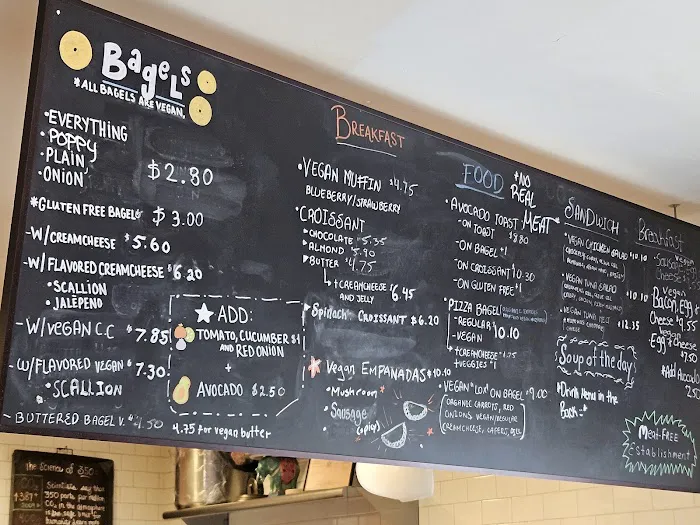 Bagels
*ALL BAGELS ARE VEGAN.
•EVERYTHING
•POPPY
•PLAIN,
•ONION,
$2.80
*GLUTEN FREE BAGELS $3.00
-W/CREAMCHEESE $5.60
-W/FLAVORED CREAMCHEESE $6.20
•SCALLION
•JALEPENO
-W/VEGAN C.C $7.85
-W/FLAVORED VEGAN $7.30
•SCALLION
-BUTTERED BAGEL V. $4.50
ADD:
TOMATO, CUCUMBER $1
AND RED ONION
+
AVOCADO $2.50
4.75 for vegan butter
BREAKFAST
•VEGAN MUFFIN $4.75
BLUEBERRY/STRAWBERRY
•CROISSANT
CHOCOLATE 5.35
ALMOND 5.90
BUTTER $4.75
+CREAMCHEESE $6.45
AND JELLY
Spinach CROISSANT $6.20
Vegan EMPANADAS $10.10
•Mushroom
•Sausage
(spicy)
FOOD
*NO REAL MEAT*
•AVOCADO TOAST
-ON TOAST $8.80
-ON BAGEL $1
-ON CROISSANT 10.30
-ON GLUTEN FREE $1
•PIZZA BAGEL
-REGULAR 10.10
-VEGAN
+CREAMCHEESE $1.75
+VEGGIES $1
•VEGAN "LOX" ON BAGEL $9.00
ORGANIC CARROTS, RED
ONIONS VEGAN/REGULAR
CREAMCHEESE, CAPERS, DILL
SANDWICH
•VEGAN CHICKEN SALAD $10.10
•VEGAN TUNA SALAD $10.10
•VEGAN TUNA MELT $12.35
Soup of the day
•Drink Menu in the
Back→
Breakfast
Vegan
Sausage
Cheese
Vegan
Bacon, Egg +
Cheese $9.55
Vegan
Egg + Cheese
$7.50
*Add Avocado
2.50
Meat-FREE
Establishment
The Science of 350
Scientists say that
350 parts per million
CO2 in the atmosphere
is the safe limit for
humanity